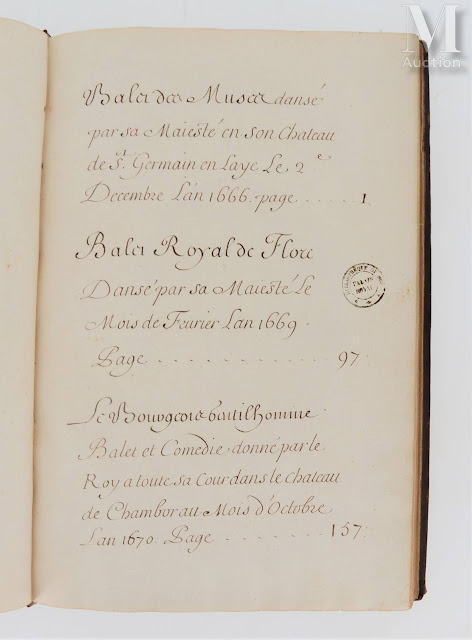 M
Auction
Balet des Muses dansé
par sa Maiesté en son Chateau
de St. Germain en Laye Le 2e
Decembre Lan 1666. page ..... 1
Balet Royal de Flore
Dansé par sa Maiesté Le
Mois de Feurier Lan 1669.
Page ............ 97.
PALAIS
ROYAL
Le Bourgeois Gentilhomme
Balet et Comedie, donné par le
Roy a toute sa Cour dans le chateau
de Chambor au Mois d'Octobre
Lan 1670. Page ........ 157.